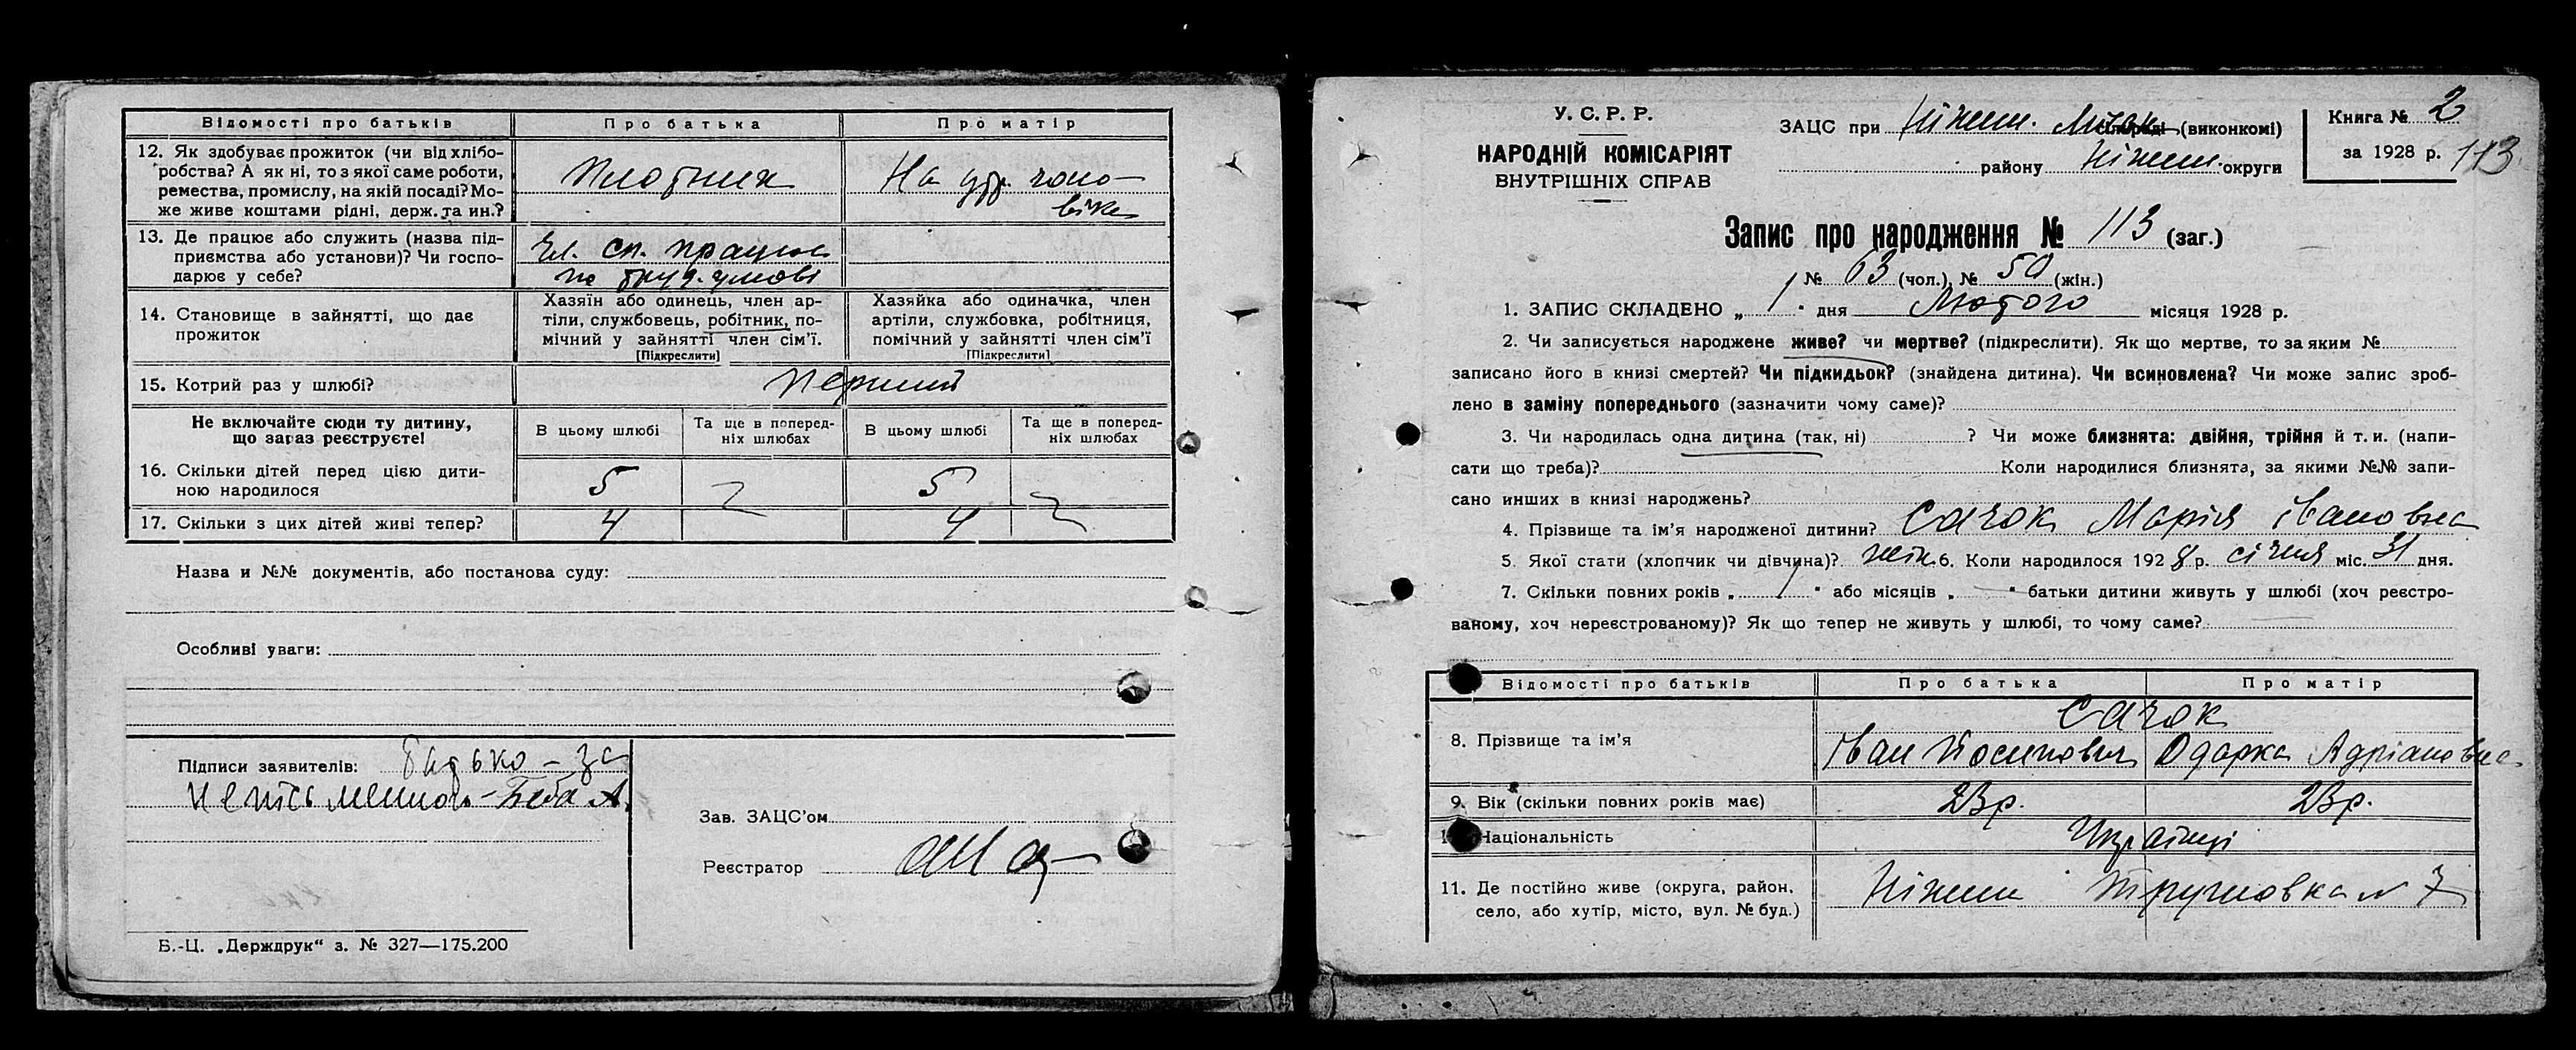 Відомості про батьків Про батька Про матір
12. Як здобуває прожиток (чи від хлібо-
робства? А як ні, то з якої саме роботи,
ремества, промислу, на якій посаді? Мо-
же живе коштами рідні, держ. та ин.?
Плотник
На утр. чоло-
віка
13. Де працює або служить (назва під-
приємства або установи)? Чи госпо-
дарює у себе?
Чл. сп. працює
по труд. умові
14. Становище в зайнятті, що дає
прожиток
Хазяїн або одинець, член ар-
тіли, службовець, робітник, по-
мічний у зайнятті член сім'ї.
[Підкреслити]
Хазяйка або одиначка, член
артіли, службовка, робітниця,
помічний у зайнятті член сім'ї
[Підкреслити]
15. Котрий раз у шлюбі? Перший
Не включайте сюди ту дитину,
що зараз реєструєте!
В цьому шлюбі
Та ще в поперед-
ніх шлюбах
В цьому шлюбі
Та ще в поперед-
ніх шлюбах
16. Скільки дітей перед цією дити-
ною народилося
5 5
17. Скільки з цих дітей живі тепер? 4 4
Назва и №№ документів, або постанова суду:
Особливі уваги:
Підписи заявителів: батько – за
неписьменного
Зав. ЗАЦС'ом
Реєстратор
Б.-Ц. „Держдрук“ з. № 327—175.200
У. С. Р. Р.
НАРОДНІЙ КОМІСАРІЯТ
ВНУТРІШНІХ СПРАВ
ЗАЦС при Ніжин. (виконкомі)
району Ніжин. округи
Книга № 2
за 1928 р. 113
Запис про народження № 113 (заг.)
№ 63 (чол.), № 50 (жін.)
1. ЗАПИС СКЛАДЕНО „ 1 " дня Лютого місяця 1928 р.
2. Чи записується народжене живе? чи мертве? (підкреслити). Як що мертве, то за яким №
записано його в книзі смертей? Чи підкидьок? (знайдена дитина). Чи всиновлена? Чи може запис зроб-
лено в заміну попереднього (зазначити чому саме)?
3. Чи народилась одна дитина (так, ні) ? Чи може близнята: двійня, трійня й т. и. (напи-
сати що треба)? Коли народилися близнята, за якими №№ запи-
сано инших в книзі народжень?
4. Прізвище та ім'я народженої дитини? Сачок Марія Івановна
5. Якої стати (хлопчик чи дівчина)? жін. 6. Коли народилося 1928 р. січня міс. 31 дня.
7. Скільки повних років „ 7 " або місяців „ — " батьки дитини живуть у шлюбі (хоч реєстро-
ваному, хоч нереєстрованому)? Як що тепер не живуть у шлюбі, то чому саме?
Відомості про батьків Про батька Про матір
Сачок
8. Прізвище та ім'я Іван Йосипович Одарка Адріановна
9. Вік (скільки повних років має) 23 р. 23 р.
Національність Українці
11. Де постійно живе (округа, район,
село, або хутір, місто, вул. № буд.)
Ніжин № 7